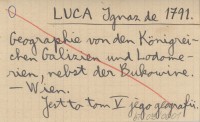 LUCA Ignaz de 1791.
Geographie von den Königrei-
chen Galizien und Lodome-
rien, nebst der Bukowine.
— Wien.
Jest to tom V jego geografii.